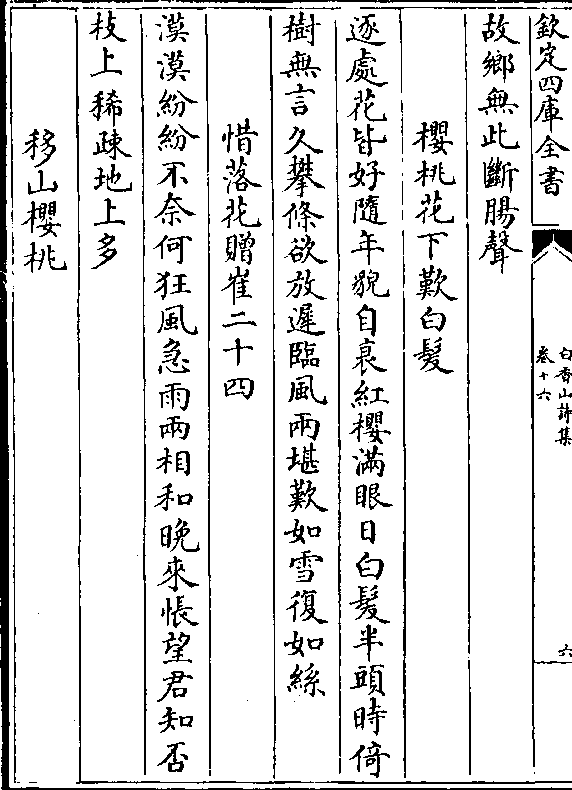 欽定四庫全書
白香山詩集
卷十六
六
故鄉無此斷腸聲
櫻桃花下歎白髮
逐處花皆好隨年貌自衰紅櫻滿眼日白髮半頭時倚
樹無言久攀條欲放遲臨風兩堪歎如雪復如絲
惜落花贈崔二十四
漠漠紛紛不奈何狂風急雨兩相和晚來悵望君知否
枝上稀疎地上多
移山櫻桃